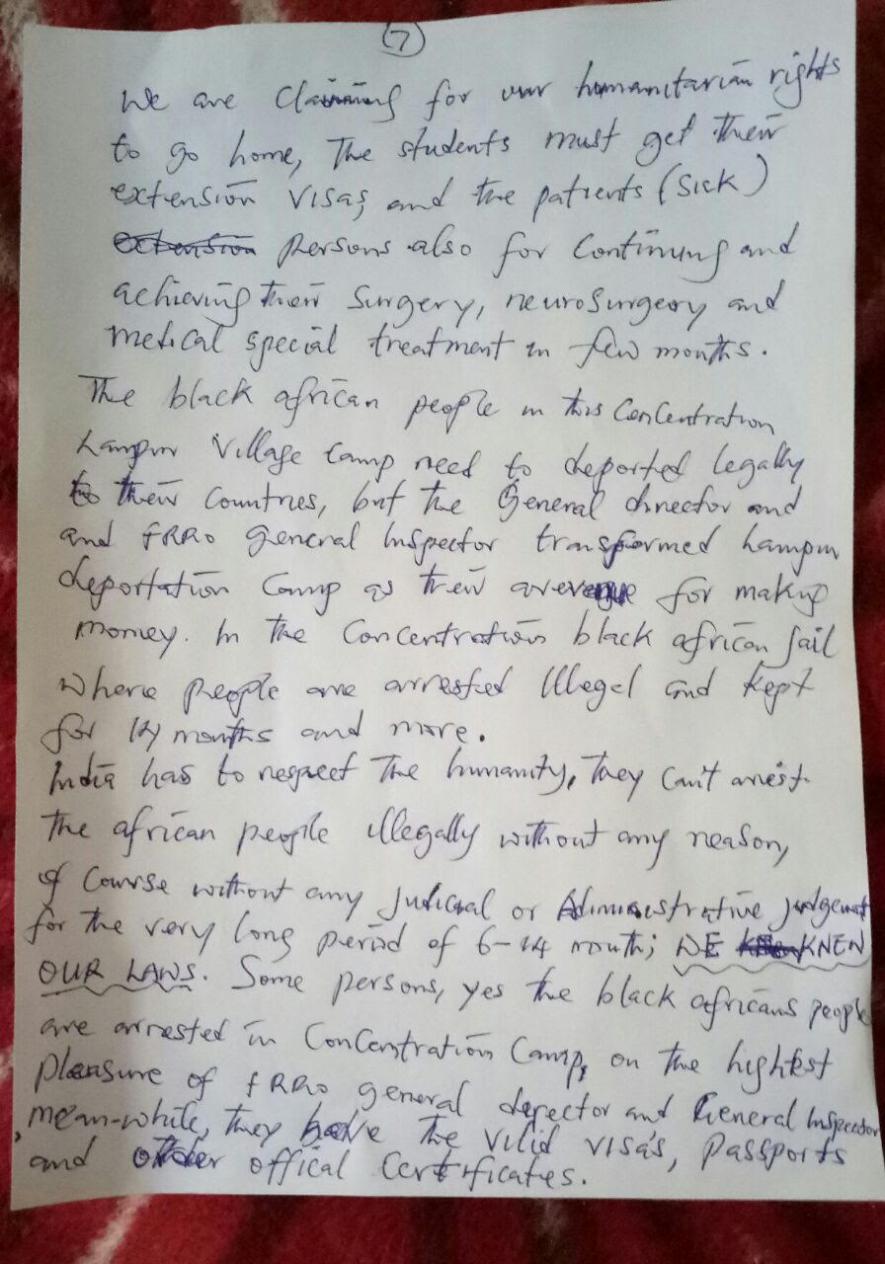 (7)
We are Claiming for our humanitarian rights
to go home, The students must get their
extension visas, and the patients (Sick)
Extension persons also for Continung and
achieving their Surgery, neurosurgery and
medical special treatment in few months.
The black african people in this Concentration
Lampur Village Camp need to deported legally
to their Countries, but the General director and
and FRRO general Inspector transformed Lampur
deportation Camp as their avenue for making
money. In the Concentration black african Jail
where people are arrested Illegel and kept
for 14 months and more.
India has to respect The humanity, They can't arrest
The african people illegally without any reason,
of Course without any Judicial or Administrative judgement
for the very long period of 6-14 month; WE KNEW
OUR LAWS. Some persons, yes the black africans people
are arrested in Concentration Camp, on the highest
pleasure of FRRO general derector and General Inspector
, mean-while, they have the vilid visa's, Passports
and other offical Certificaties.